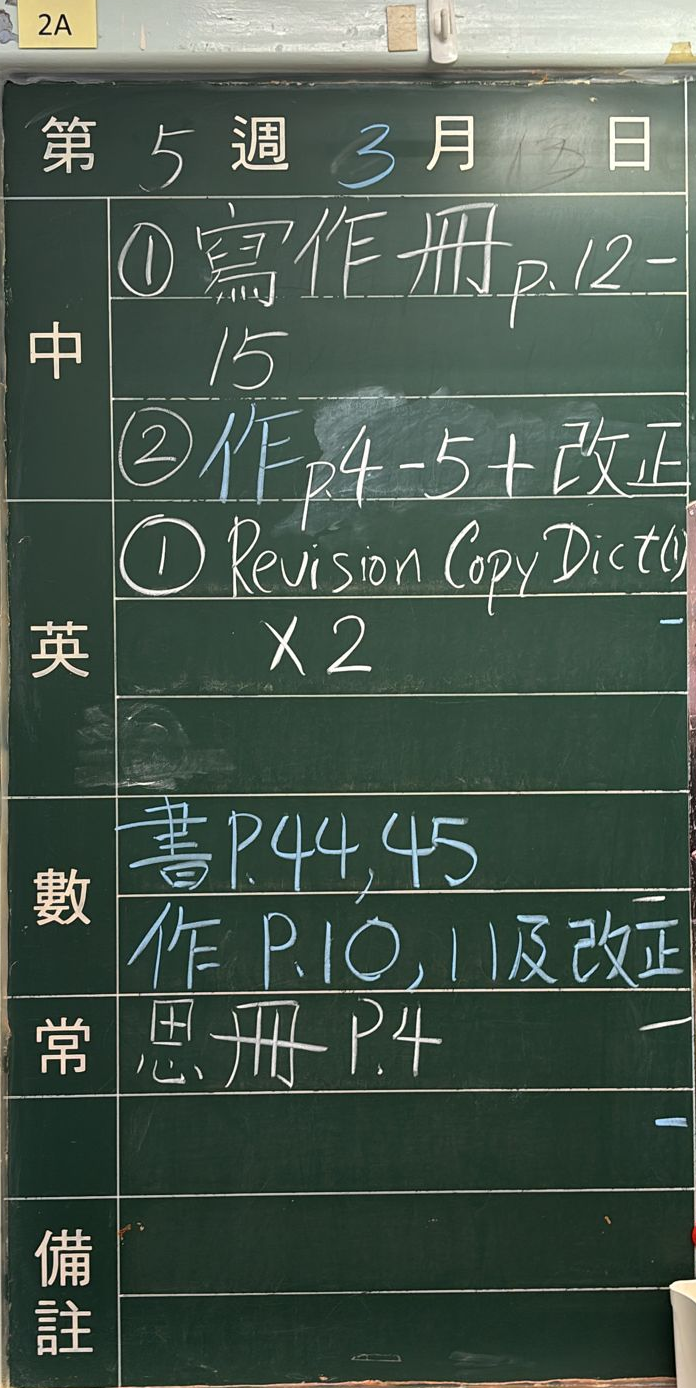 2A
第 5 週 3 月 13 日
中
① 寫作冊 p.12-
15
② 作 p.4-5+改正
英
① Revision Copy Dict(1)
X2
數
書 P.44,45
作 P.10,11及改正
常
思冊 P.4
備註